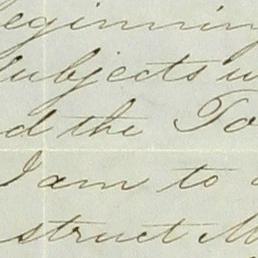 eginning
subjects
d the To
I am to
struct M